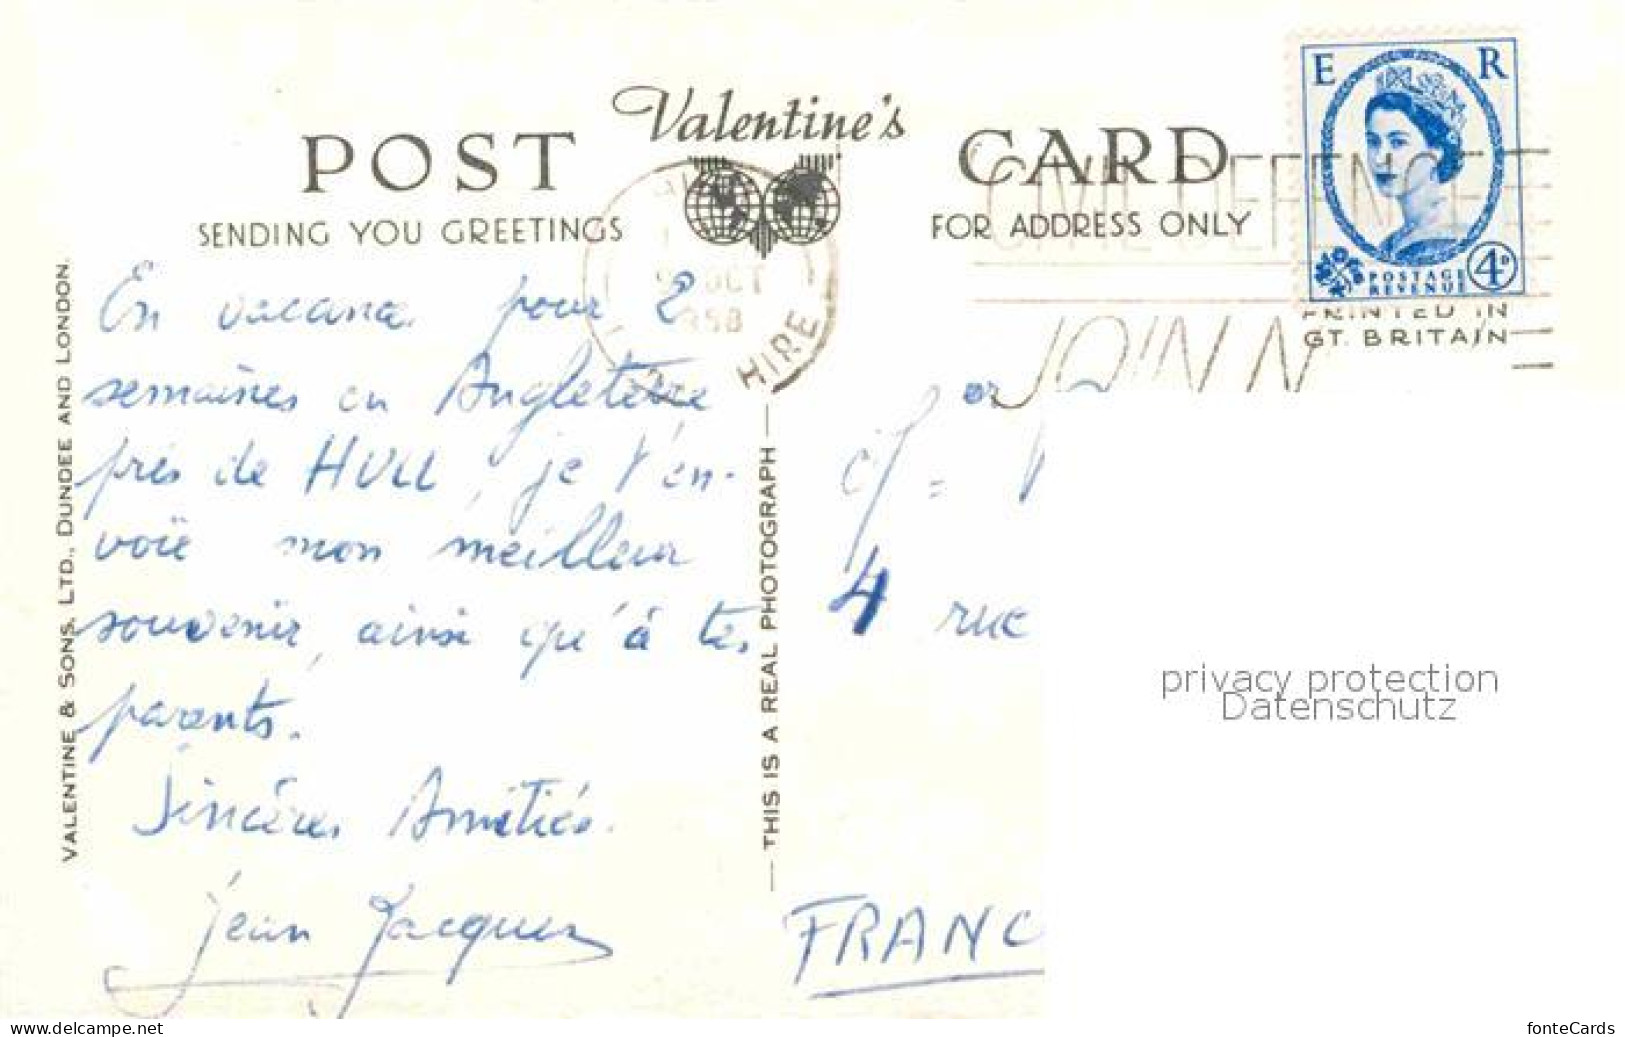 Valentine's
POST CARD
SENDING YOU GREETINGS
FOR ADDRESS ONLY
E R
POSTAGE
REVENUE
4D
PRINTED IN
GT. BRITAIN
CIVIL DEFENCE
JOIN N
OCT
HIRE
En vacance pour 2
semaines en Angleterre
près de HULL, je t'en-
voïe mon meilleur
souvenir, ainsi qu'à tes
parents.
Sincères Amitiés.
Jean Jacques
4 rue
FRANC
VALENTINE & SONS, LTD., DUNDEE AND LONDON.
THIS IS A REAL PHOTOGRAPH
privacy protection
Datenschutz
www.delcampe.net
fonteCards